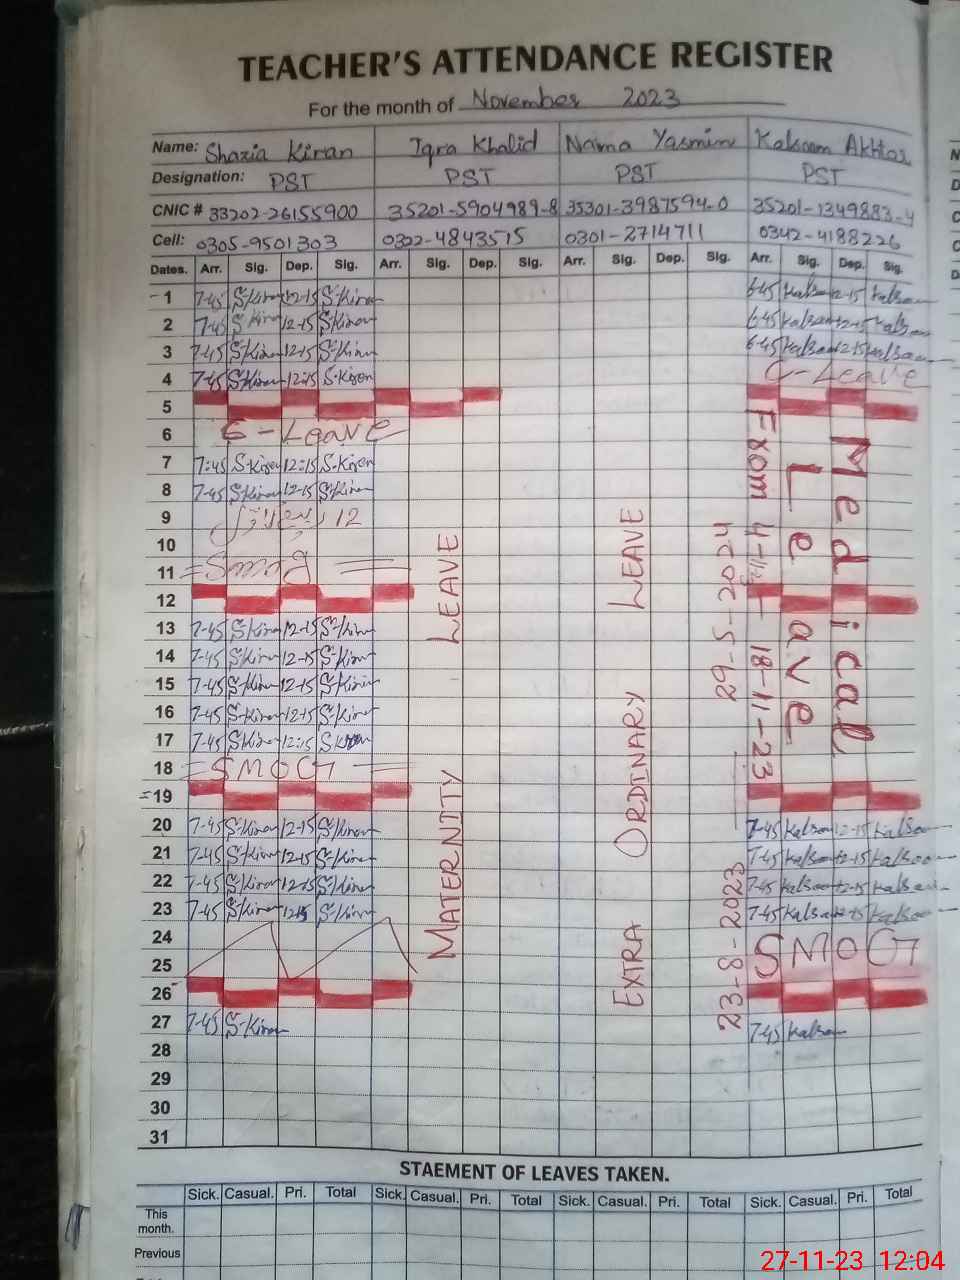 TEACHER'S ATTENDANCE REGISTER
For the month of November 2023
Name: Shazia Kiran Iqra Khalid Naima Yasmin Kalsoom Akhtar
Designation: PST PST PST PST
CNIC # 33202-26155900 35201-5904989-8 35301-3987594-0 35201-1349883-4
Cell: 0305-9501303 0302-4843515 0301-2714711 0342-4188226
Dates. Arr. Sig. Dep. Sig. Arr. Sig. Dep. Sig. Arr. Sig. Dep. Sig. Arr. Sig. Dep. Sig.
1 7-45 S-Kiran 12-15 S-Kiran 6-45 Kalsoom 12-15 Kalsoom
2 7-45 S-Kiran 12-15 S-Kiran 6-45 Kalsoom 12-15 Kalsoom
3 7-45 S-Kiran 12-15 S-Kiran 6-45 Kalsoom 12-15 Kalsoom
4 7-45 S-Kiran 12:15 S-Kiran C-Leave
5
6 C-Leave
7 7:45 S-Kiran 12:15 S-Kiran
8 7-45 S-Kiran 12-15 S-Kiran
9 12 ربیع الاول
10
11 = Smog =
12
13 7-45 S-Kiran 12-15 S-Kiran
14 7-45 S-Kiran 12-15 S-Kiran
15 7-45 S-Kiran 12-15 S-Kiran
16 7-45 S-Kiran 12-15 S-Kiran
17 7-45 S-Kiran 12:15 S-Kiran
18 = SMOG =
19
20 7-45 S-Kiran 12-15 S-Kiran 7-45 Kalsoom 12-15 Kalsoom
21 7-45 S-Kiran 12-15 S-Kiran 7-45 Kalsoom 12-15 Kalsoom
22 7-45 S-Kiran 12-15 S-Kiran 7-45 Kalsoom 12-15 Kalsoom
23 7-45 S-Kiran 12-15 S-Kiran 7-45 Kalsoom 12-15 Kalsoom
24 SMOG
25
26
27 7-45 S-Kiran 7-45 Kalsoom
28
29
30
31
MATERNITY LEAVE
EXTRA ORDINARY LEAVE
23-8-2023 — 29-5-2024
From 4-11-23 - 18-11-23
Leave
Medical
STAEMENT OF LEAVES TAKEN.
Sick. Casual. Pri. Total Sick. Casual. Pri. Total Sick. Casual. Pri. Total Sick. Casual. Pri. Total
This month.
Previous
27-11-23 12:04